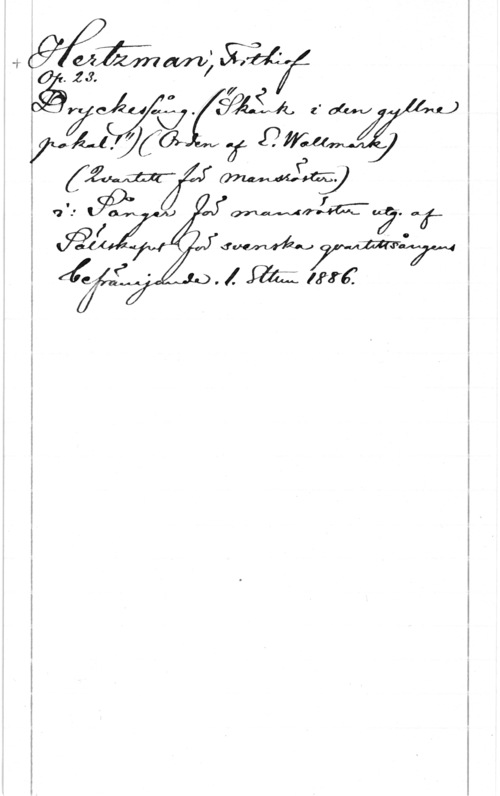 + Hertzman, Frithiof
Op. 23.
Dryckessång. ("Skänk i den gyllne
pokal!") (Orden af E. Wallmark)
(Qvartett för mansröster.)
i: Sånger för mansröster utg. af
Sällskapet för svenska qvartettsångens
befrämjande. 1. Sthm 1886.